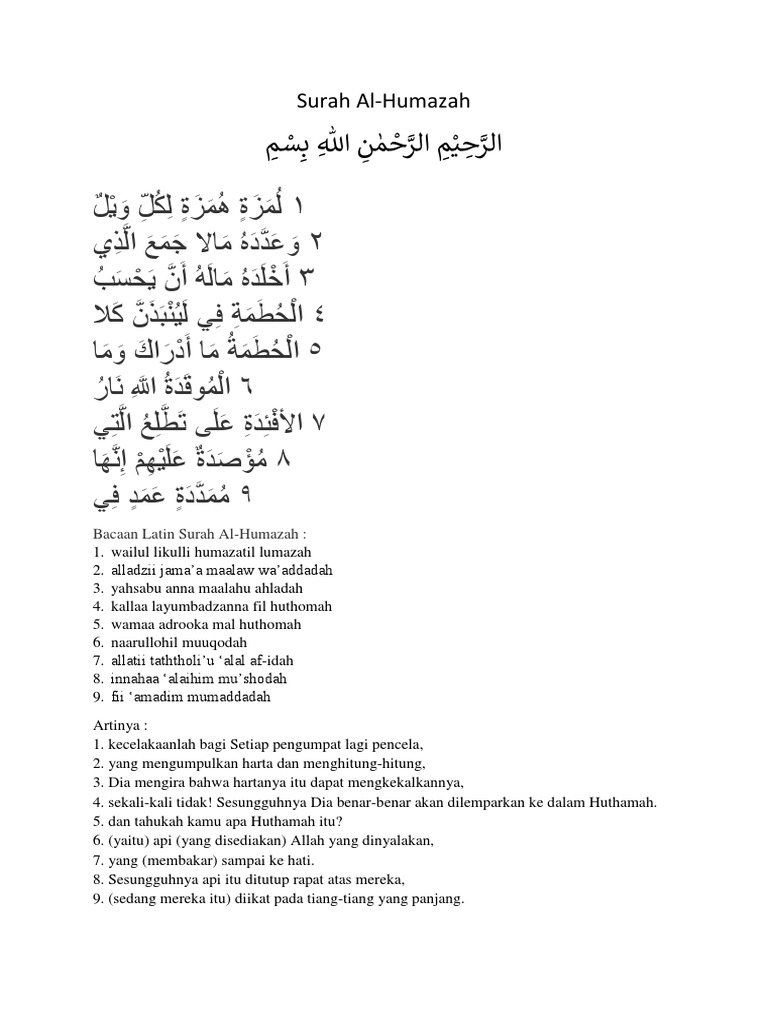 Surah Al-Humazah
الرَّحِيْمِ الرَّحْمٰنِ اللهِ بِسْمِ
١ لُمَزَةٍ هُمَزَةٍ لِكُلِّ وَيْلٌ
٢ وَعَدَّدَهُ مَالا جَمَعَ الَّذِي
٣ أَخْلَدَهُ مَالَهُ أَنَّ يَحْسَبُ
٤ الْحُطَمَةِ فِي لَيُنْبَذَنَّ كَلا
٥ الْحُطَمَةُ مَا أَدْرَاكَ وَمَا
٦ الْمُوقَدَةُ اللَّهِ نَارُ
٧ الأفْئِدَةِ عَلَى تَطَّلِعُ الَّتِي
٨ مُؤْصَدَةٌ عَلَيْهِمْ إِنَّهَا
٩ مُمَدَّدَةٍ عَمَدٍ فِي
Bacaan Latin Surah Al-Humazah :
1. wailul likulli humazatil lumazah
2. alladzii jama’a maalaw wa’addadah
3. yahsabu anna maalahu ahladah
4. kallaa layumbadzanna fil huthomah
5. wamaa adrooka mal huthomah
6. naarullohil muuqodah
7. allatii taththoli’u ‘alal af-idah
8. innahaa ‘alaihim mu’shodah
9. fii ‘amadim mumaddadah
Artinya :
1. kecelakaanlah bagi Setiap pengumpat lagi pencela,
2. yang mengumpulkan harta dan menghitung-hitung,
3. Dia mengira bahwa hartanya itu dapat mengkekalkannya,
4. sekali-kali tidak! Sesungguhnya Dia benar-benar akan dilemparkan ke dalam Huthamah.
5. dan tahukah kamu apa Huthamah itu?
6. (yaitu) api (yang disediakan) Allah yang dinyalakan,
7. yang (membakar) sampai ke hati.
8. Sesungguhnya api itu ditutup rapat atas mereka,
9. (sedang mereka itu) diikat pada tiang-tiang yang panjang.